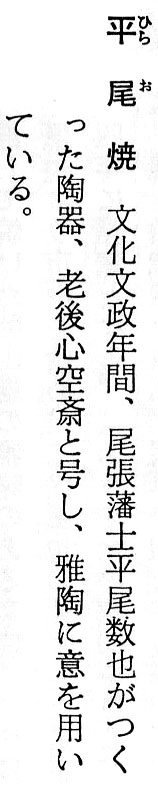 平尾焼　文化文政年間、尾張藩士平尾数也がつく
った陶器、老後心空斎と号し、雅陶に意を用い
ている。